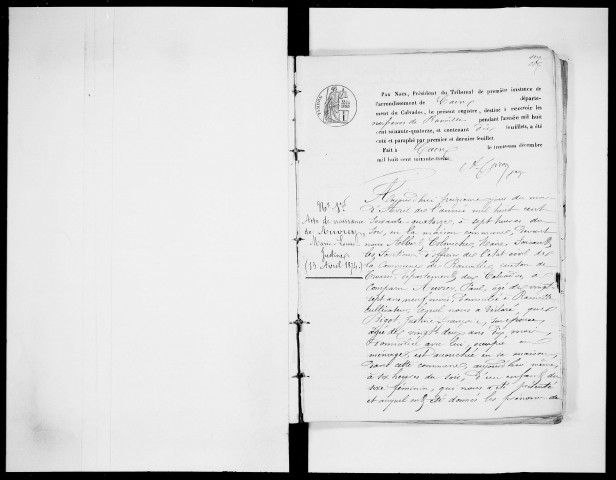 Par Nous, Président du Tribunal de première instance de
l'arrondissement de Caen départe-
ment du Calvados, le présent registre, destiné à recevoir les
naissances de Ranville pendant l'année mil huit
cent soixante-quatorze, et contenant dix feuillets, a été
coté et paraphé par premier et dernier feuillet.
Fait à Caen le trente-un décembre
mil huit cent soixante-treize
No 1er
Acte de naissance
de Auvrey
Marie Louise
Justine
(13 Avril 1874.)
Aujourd'hui treizième jour du mois
d'Avril de l'année mil huit cent
soixante-quatorze, à sept heures du
soir, en la maison commune, devant
nous Maire
les fonctions d'officier de l'état civil de
la Commune de Ranville, canton de
département du Calvados, a
comparu Auvrey, Paul, âgé de vingt
sept ans neuf mois, domicilié à Ranville
cultivateur, lequel nous a déclaré que
Bigot, Justine, son épouse,
âgée de vingt deux ans dix mois,
domiciliée avec lui, occupée au
ménage, est accouchée en sa maison
dans cette commune, aujourd'hui même,
à six heures du soir, d'un enfant du
sexe féminin, qui nous a été présenté
et auquel ont été donnés les prénoms de